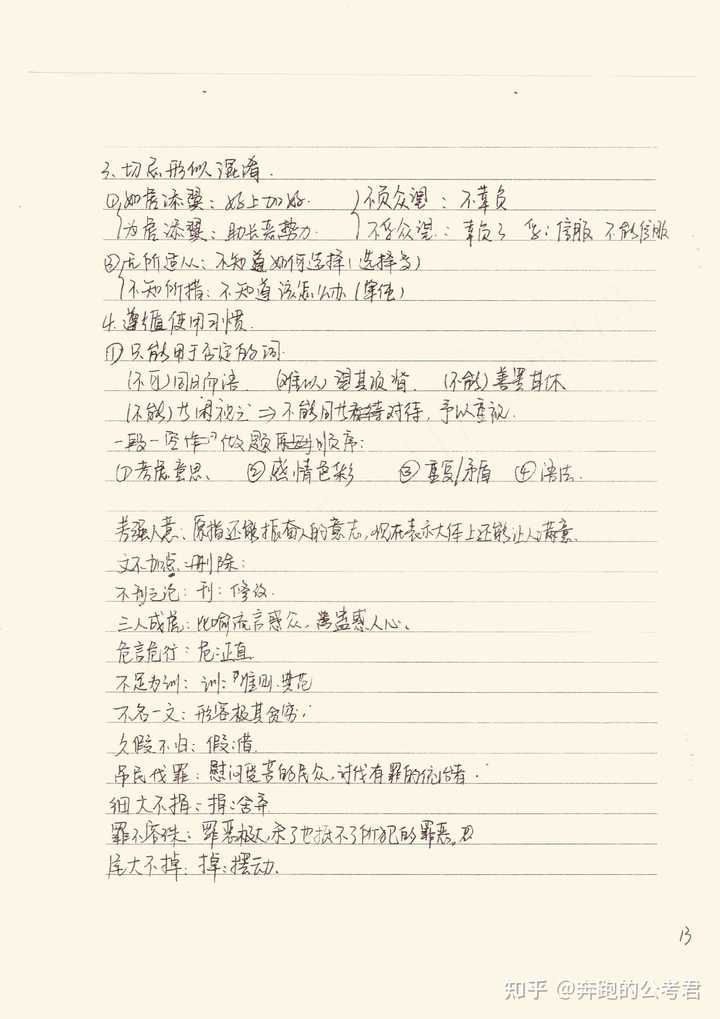 3、切忌形似混淆.
①如虎添翼：好上加好. 不负众望：不辜负
为虎添翼：助长恶势力. 不孚众望：辜负了 孚：信服 不能信服
②无所适从：不知道如何选择(选择多)
不知所措：不知道该怎么办(窘住)
4、遵循使用习惯.
①只能用于否定的词.
(不可)同日而语 (难以)望其项背. (不能)善罢甘休
(不能)等闲视之⇒不能同等对待，予以重视.
做题顺序：
①考虑意思、 ②感情色彩 ③重复/矛盾 ④语法.
差强人意：原指还能振奋人的意志，现在表示大体上还能让人满意.
文不加点：删除：
不刊之论：刊：修改.
三人成虎：比喻流言惑众，蛊惑人心.
危言危行：危：正直
不足为训：训：准则.典范
不名一文：形容极其贫穷.
久假不归：假：借.
吊民伐罪：慰问受苦的民众，讨伐有罪的统治者.
细大不捐：捐：舍弃
罪不容诛：罪恶极大，杀了也抵不了所犯的罪恶.
尾大不掉：掉：摆动.
13
知乎 @奔跑的公考君